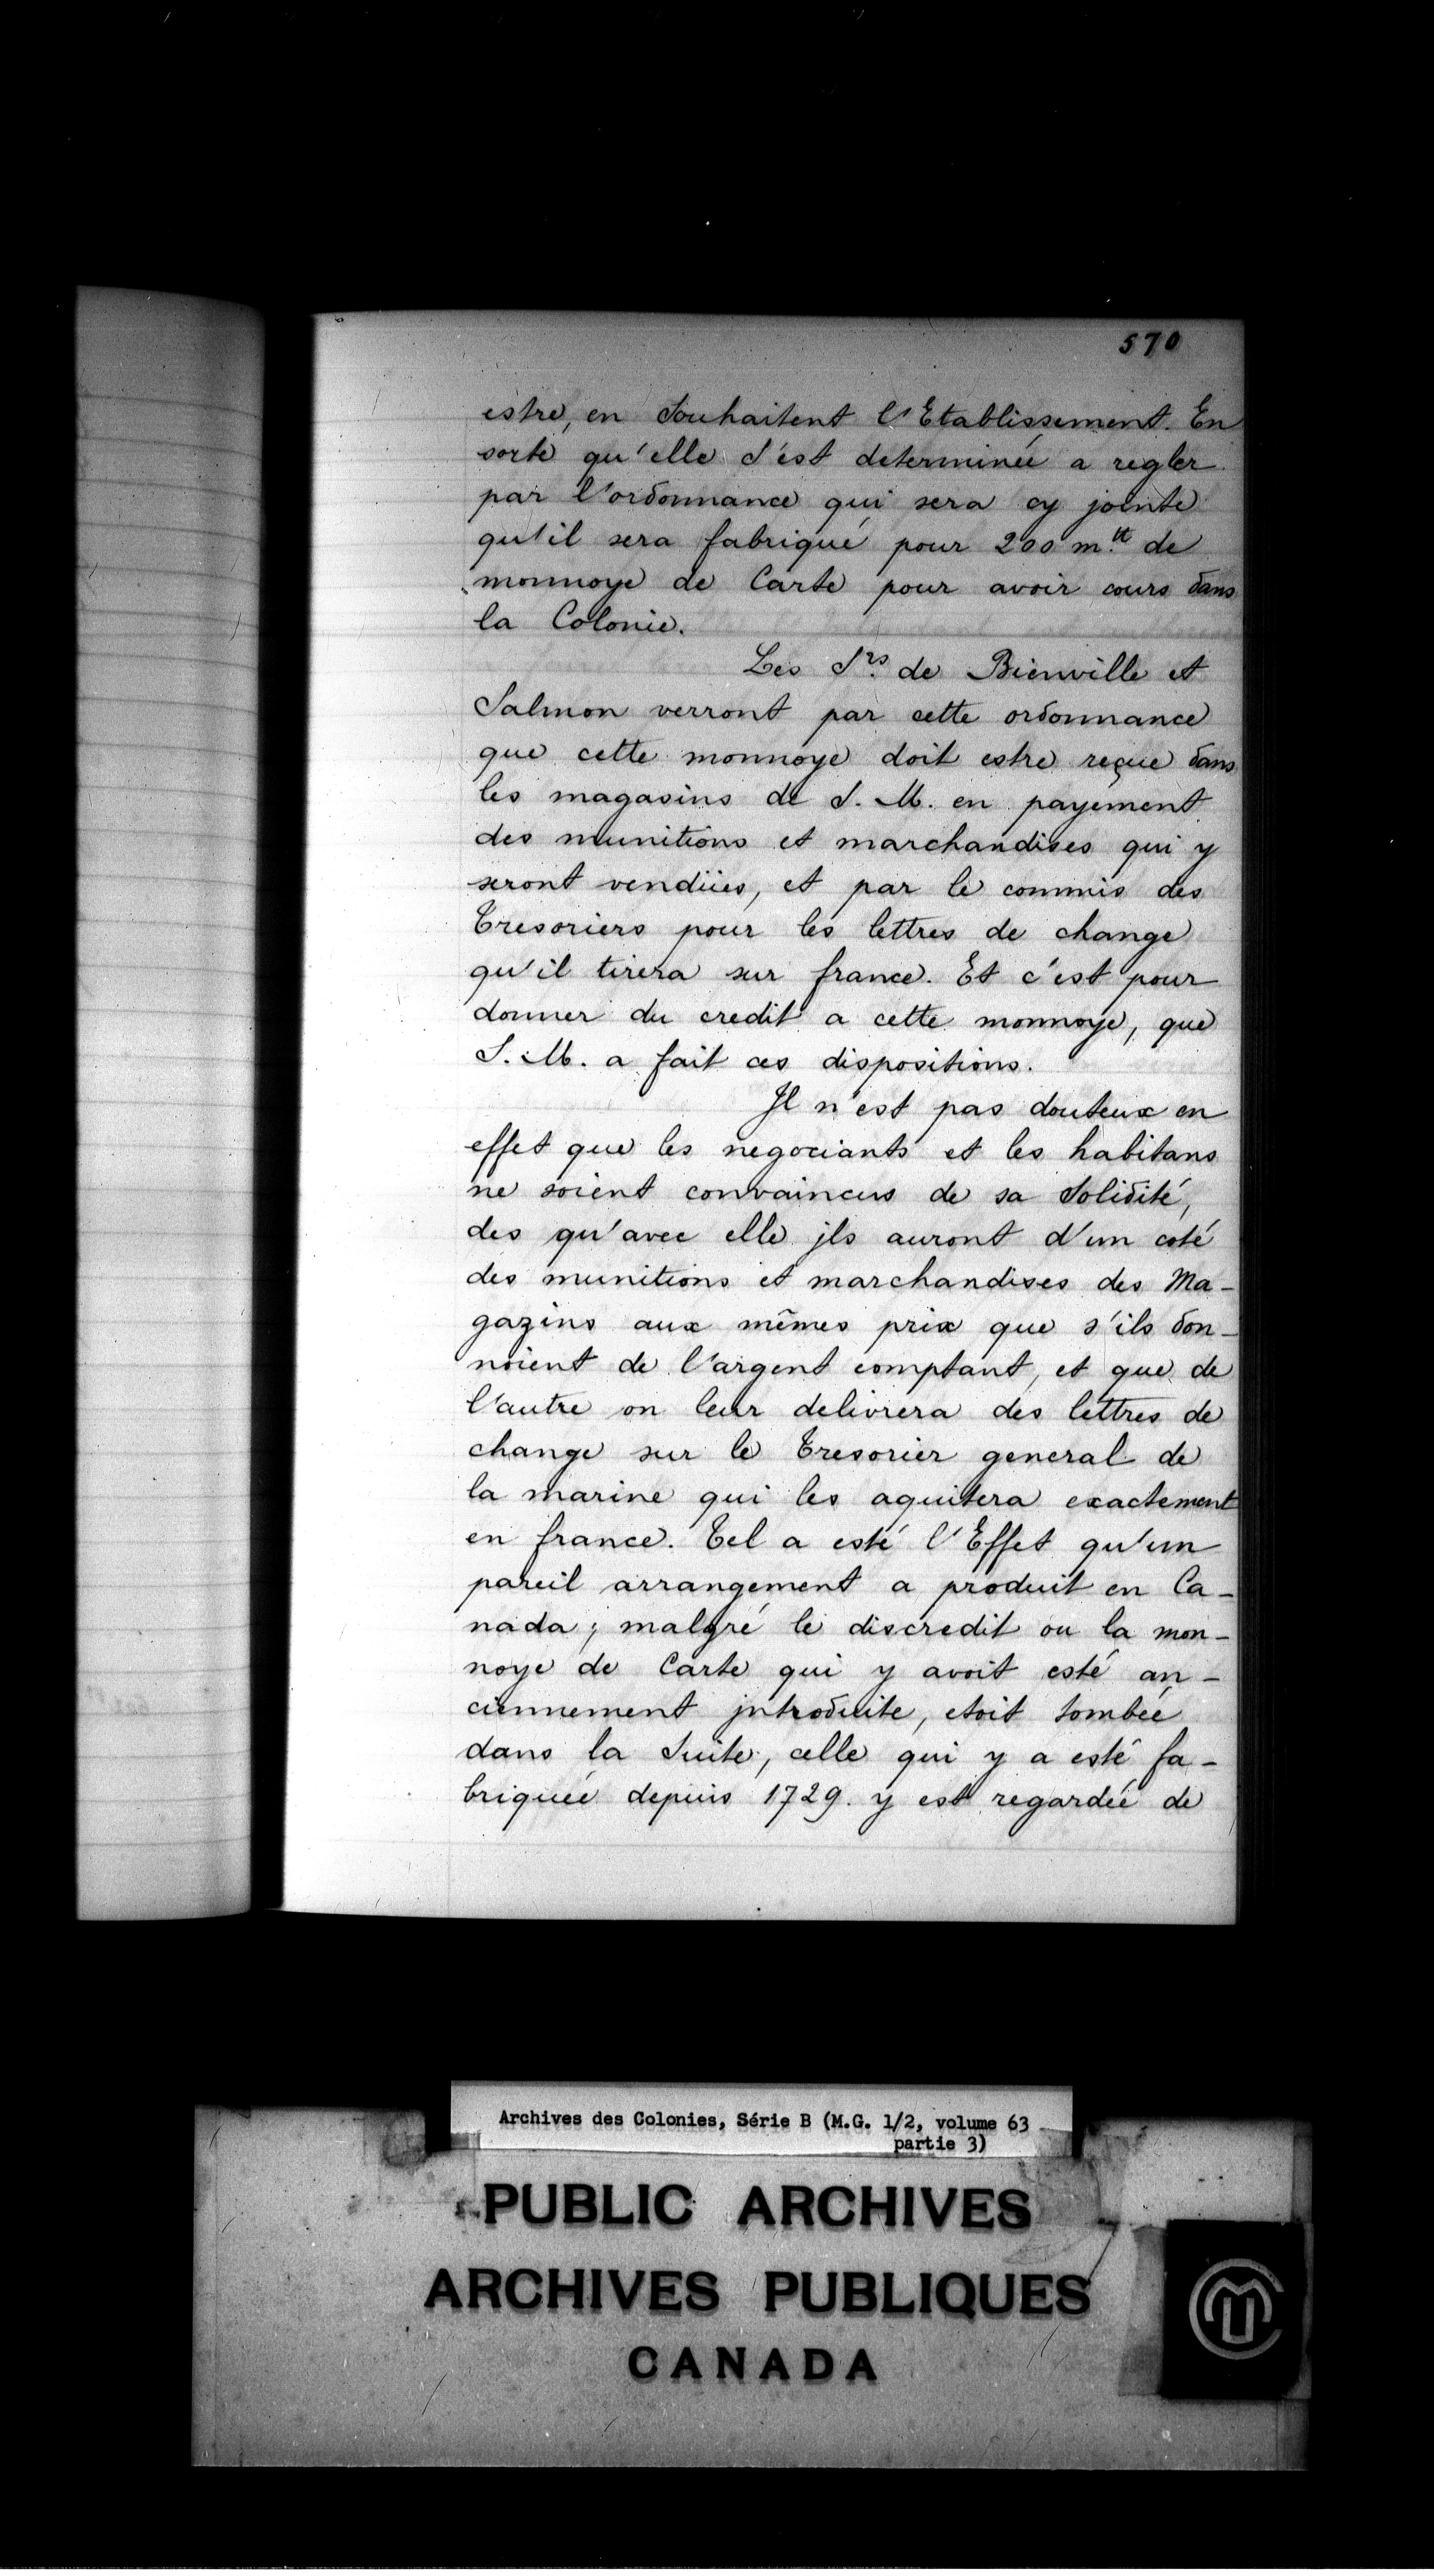 570
estre, en Souhaitent l'Etablissement. En
sorte qu'elle s'est determinée a regler
par l'ordonnance qui sera cy jointe
qu'il sera fabriqué pour 200 m.tt de
monnoye de Carte pour avoir cours dans
la Colonie.
Les Srs. de Bienville et
Salmon verront par cette ordonnance
que cette monnoye doit estre reçue dans
les magasins de S. M. en payement
des munitions et marchandises qui y
seront vendües, et par le commis des
Tresoriers pour les lettres de change
qu'il tirera sur france. Et c'est pour
donner du credit a cette monnoye, que
S. M. a fait ces dispositions.
Jl n'est pas douteux en
effet que les negociants et les habitans
ne soient convaincus de sa Solidité,
des qu'avec elle jls auront d'un coté
des munitions et marchandises des Ma-
gazins aux mêmes prix que s'ils don-
noient de l'argent comptant, et que de
l'autre on leur delivrera des lettres de
change sur le Tresorier general de
la marine qui les aquitera exactement
en france. Tel a esté l'Effet qu'un
pareil arrangement a produit en Ca-
nada; malgré le discredit ou la mon-
noye de Carte qui y avoit esté an-
ciennement jntroduite, etoit tombée
dans la Suite, celle qui y a esté fa-
briquée depuis 1729. y est regardée de
Archives des Colonies, Série B (M.G. 1/2, volume 63
partie 3)
PUBLIC ARCHIVES
ARCHIVES PUBLIQUES
CANADA